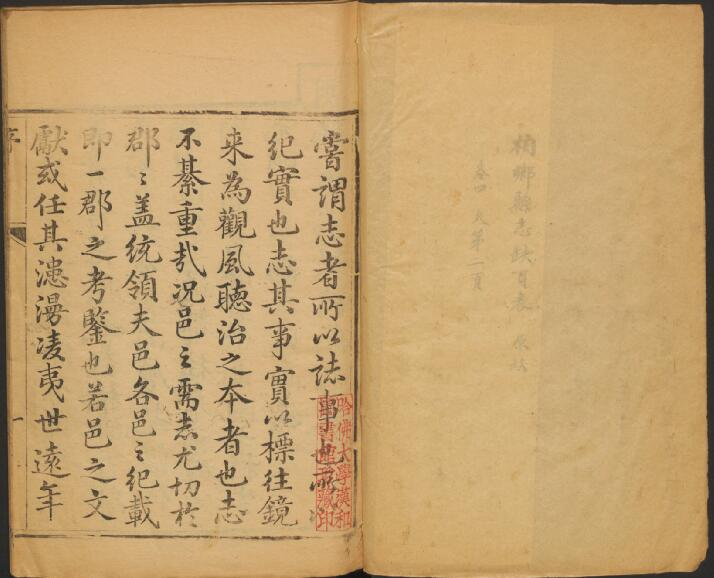 柏鄉縣志缺頁表 原缺
卷四 又第二頁
嘗謂志者所以誌事也所以
紀實也志其事實以標往鏡
来為觀風聽治之本者也志
不綦重㢤况邑之需志尤切扵
郡〻盖統領夫邑各邑之紀載
即一郡之考鑒也若邑之文
獻或任其漶漫凌夷世遠年
序
一
哈佛大學漢和
圖書館珍藏印